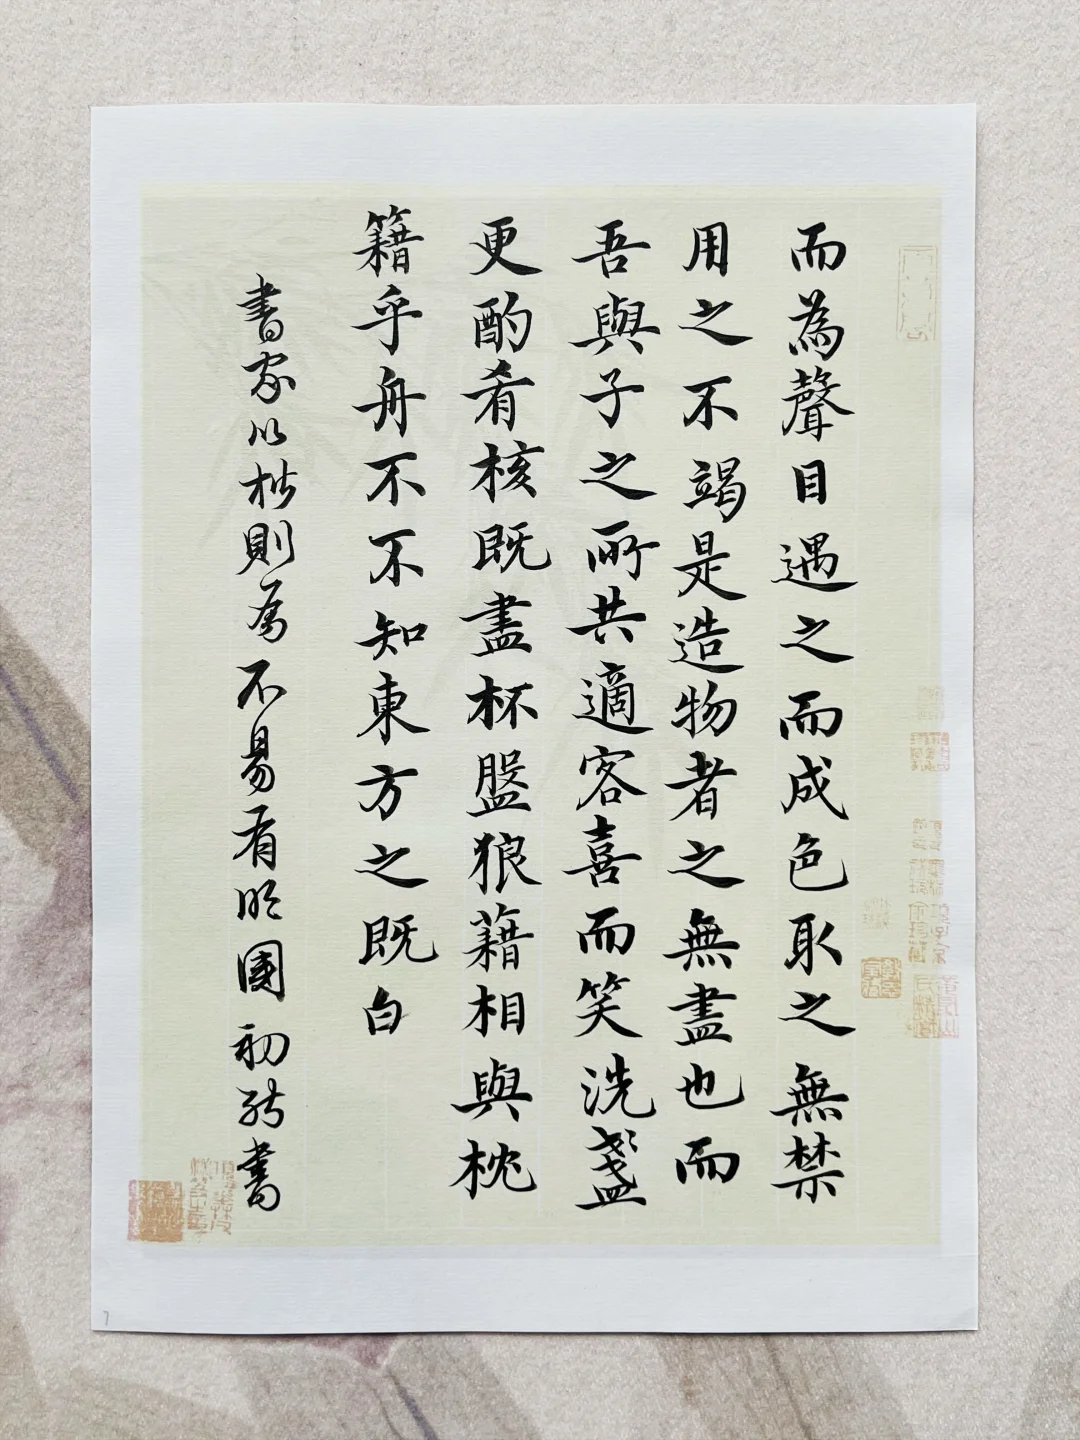 而為聲目遇之而成色取之無禁
用之不竭是造物者之無盡也而
吾與子之所共適客喜而笑洗盞
更酌肴核既盡杯盤狼藉相與枕
籍乎舟不不知東方之既白
書家以楷則為不易有明國初能書
7